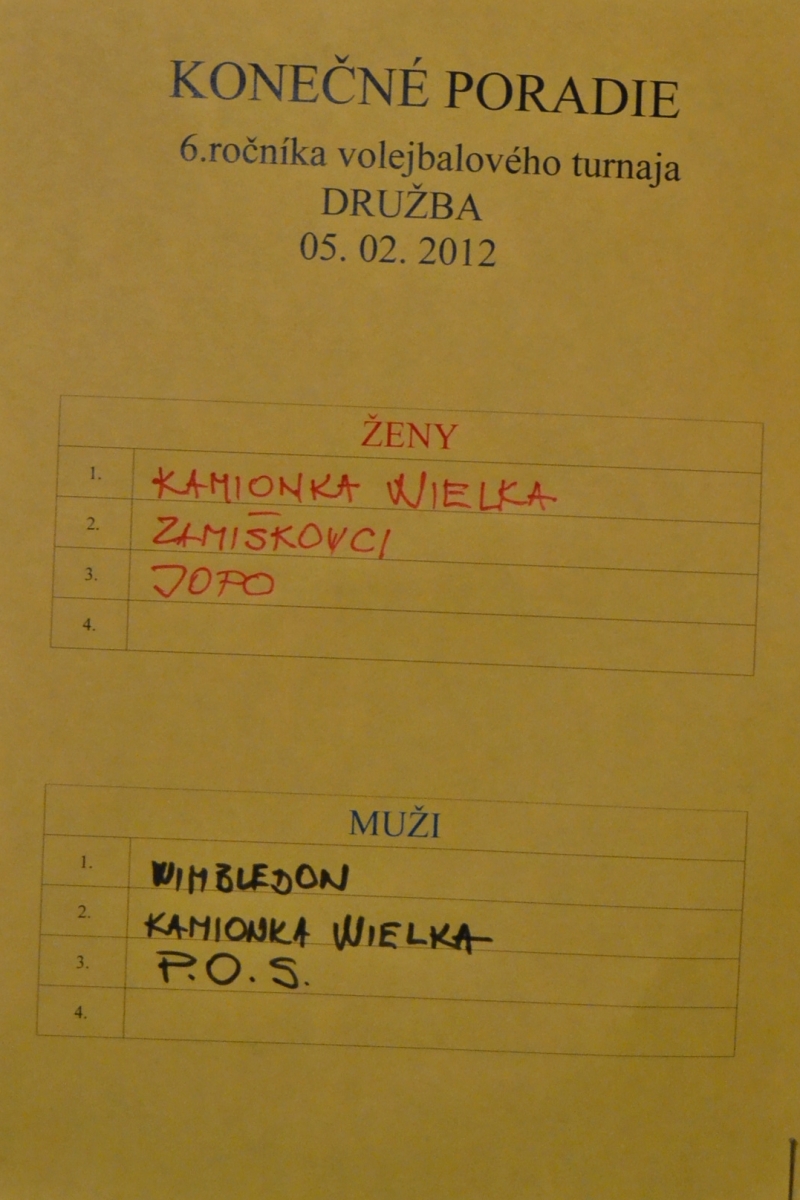 KONEČNÉ PORADIE
6.ročníka volejbalového turnaja
DRUŽBA
05. 02. 2012
ŽENY
1. KAMIONKA WIELKA
2. ZAMIŠKOVCI
3. JOPO
4.
MUŽI
1. WIMBLEDON
2. KAMIONKA WIELKA
3. P.O.S.
4.